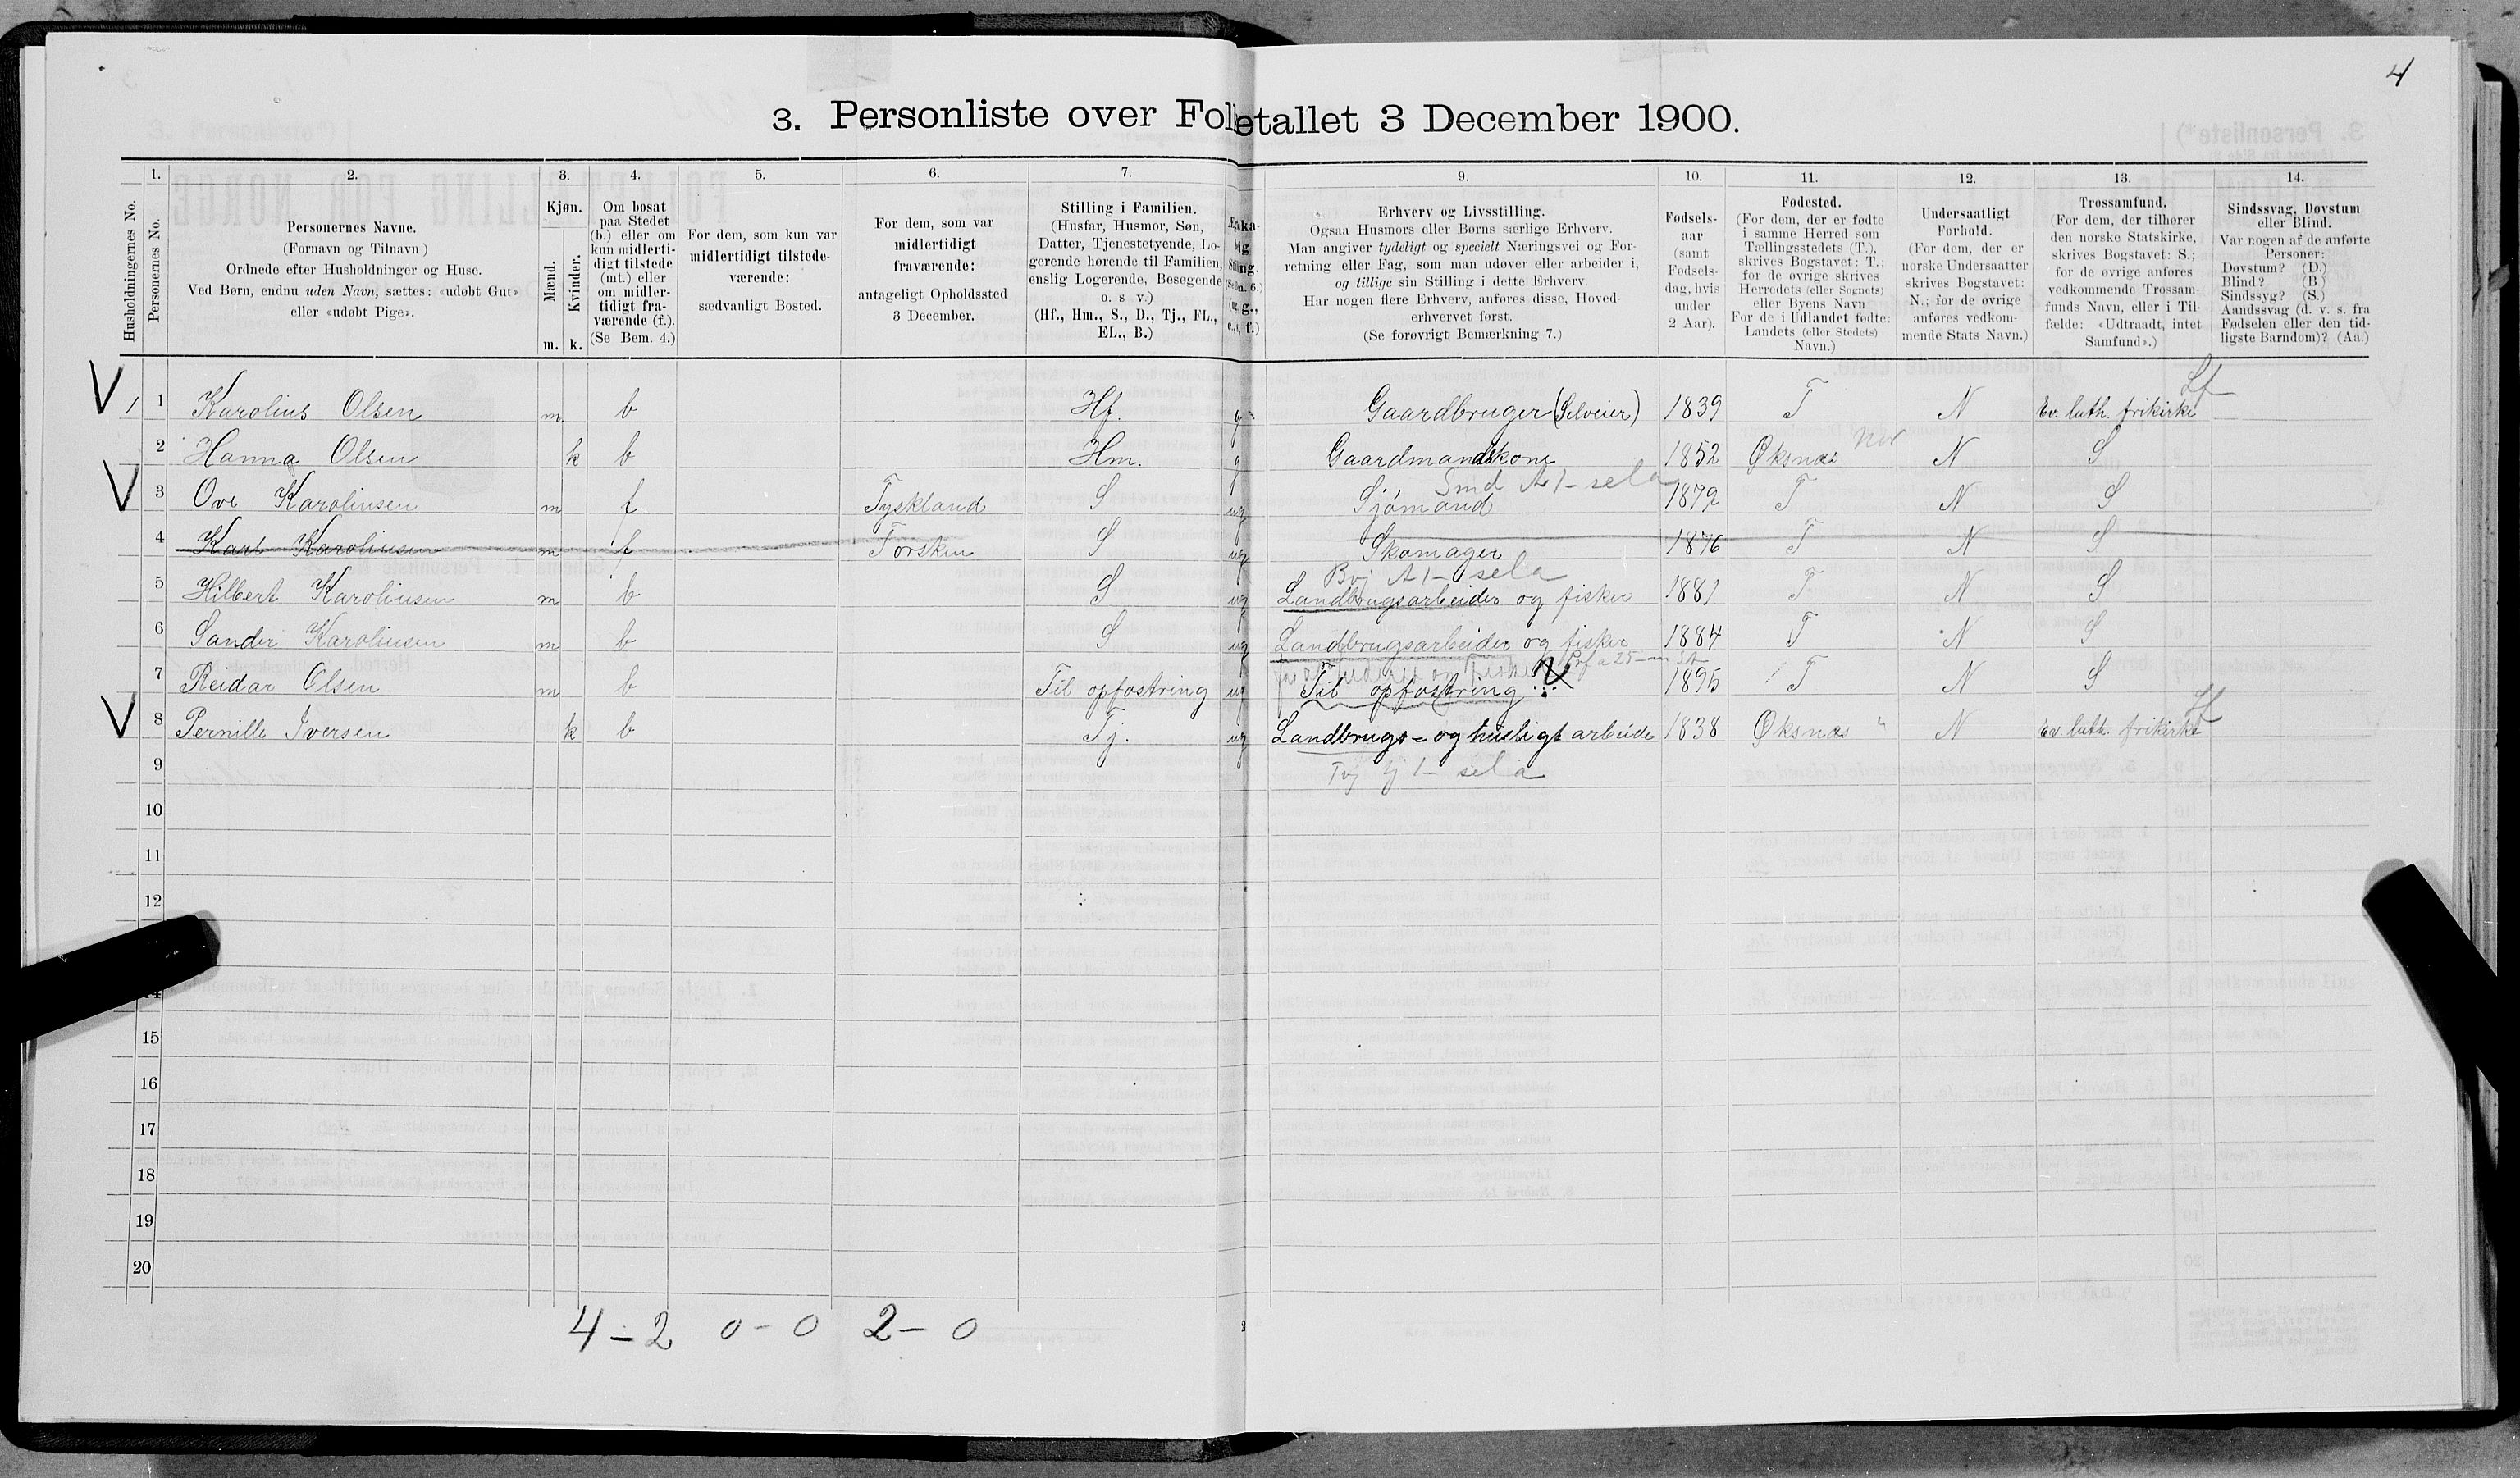 4
3. Personliste over Folketallet 3 December 1900.
1. 2. 3. 4. 5. 6. 7. 9. 10. 11. 12. 13. 14.
Husholdningernes No.
Personernes No.
Personernes Navne.
(Fornavn og Tilnavn)
Ordnede efter Husholdninger og Huse.
Ved Børn, endnu uden Navn, sættes: «udøbt Gut»
eller «udøbt Pige».
Kjøn.
Mænd.
Kvinder.
m. k.
Om bosat
paa Stedet
(b.) eller om
kun midlerti-
digt tilstede
(mt.) eller
om midler-
tidigt fra-
værende (f.).
(Se Bem. 4.)
For dem, som kun var
midlertidigt tilstede-
værende:
sædvanligt Bosted.
For dem, som var
midlertidigt
fraværende:
antageligt Opholdssted
3 December.
Stilling i Familien.
(Husfar, Husmor, Søn,
Datter, Tjenestetyende, Lo-
gerende hørende til Familien,
enslig Logerende, Besøgende
o. s. v.)
(Hf., Hm., S., D., Tj., FL.,
EL., B.)
Erhverv og Livsstilling.
Ogsaa Husmors eller Børns særlige Erhverv.
Man angiver tydeligt og specielt Næringsvei og For-
retning eller Fag, som man udøver eller arbeider i,
og tillige sin Stilling i dette Erhverv.
Har nogen flere Erhverv, anføres disse, Hoved-
erhvervet først.
(Se forøvrigt Bemærkning 7.)
Fødsels-
aar
(samt
Fødsels-
dag, hvis
under
2 Aar).
Fødested.
(For dem, der er fødte
i samme Herred som
Tællingsstedets (T.),
skrives Bogstavet: T.;
for de øvrige skrives
Herredets (eller Sognets)
eller Byens Navn
For de i Udlandet fødte:
Landets (eller Stedets)
Navn.)
Undersaatligt
Forhold.
(For dem, der er
norske Undersaatter
skrives Bogstavet:
N.; for de øvrige
anføres vedkom-
mende Stats Navn.)
Trossamfund.
(For dem, der tilhører
den norske Statskirke,
skrives Bogstavet: S.;
for de øvrige anføres
vedkommende Trossam-
funds Navn, eller i Til-
fælde: «Udtraadt, intet
Samfund».)
Sindssvag, Døvstum
eller Blind.
Var nogen af de anførte
Personer:
Døvstum? (D.)
Blind? (B.)
Sindssyg? (S.)
Aandssvag (d. v. s. fra
Fødselen eller den tid-
ligste Barndom)? (Aa.)
1 1 Karolius Olsen m b Hf. g Gaardbruger (Selveier) 1839 T N Ev. luth. frikirke Lf
2 Hanna Olsen k b Hm. g Gaardmandskone 1852 Øksnæs Nor N S
3 Ove Karoliusen m f Tyskland S ug Sjømand 1872 T N S
4 Karl Karoliusen m f Torsken S ug Skomager 1876 T N S
5 Hilbert Karoliusen m b S ug Landbrugsarbeider og fisker 1881 T N S
6 Sander Karoliusen m b S ug Landbrugsarbeider og fisker 1884 T N S
7 Reidar Olsen m b Til opfostring ug Til opfostring 1895 T N S
8 Pernille Iversen k b Tj. ug Landbrugs- og husligt arbeide 1838 Øksnæs " N Ev. luth. frikirke Lf
9
10
11
12
14
15
16
17
18
19
20
4 - 2 0 - 0 2 - 0